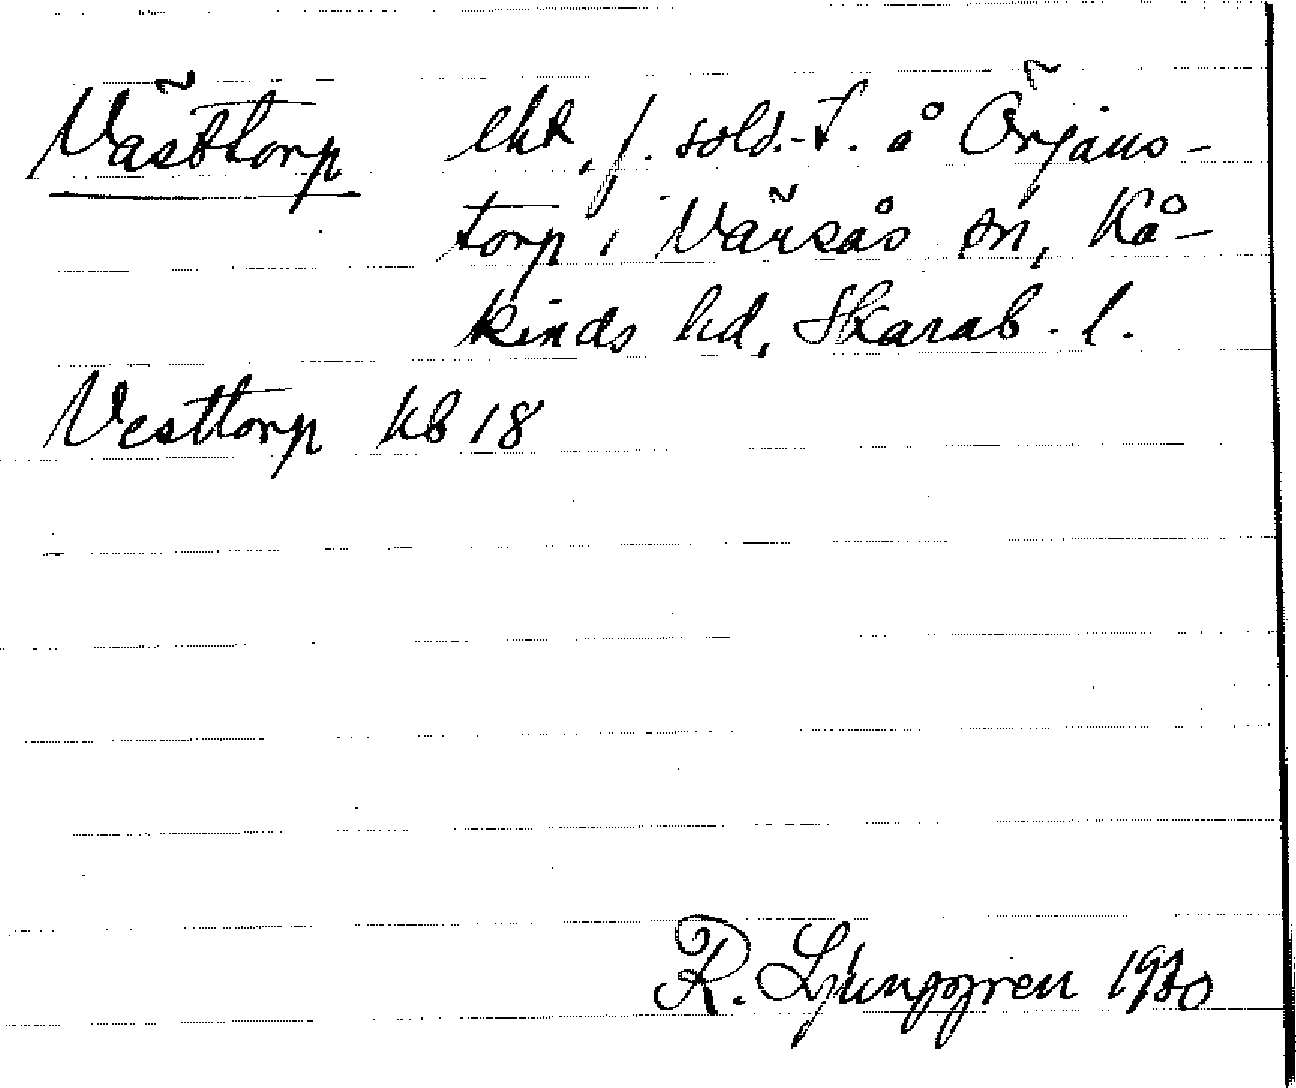 Västtorp lht, f. sold.-t. å Örjans-
torp i Värsås sn, Kå-
kinds hd, Skarab. l.
Vesttorp kb 18
R. Ljunggren 1930